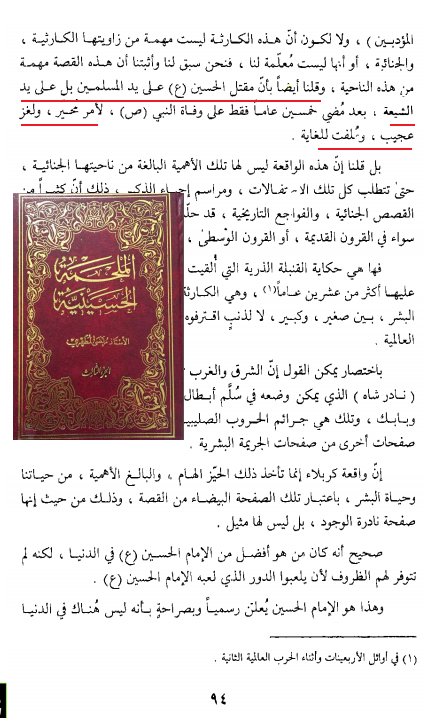 المؤدبين ) ، ولا لكون أنّ هذه الكارثة ليست مهمة من زاويتها الكارثية ،
والجنائية ، أو أنها ليست مُعلّمة لنا ، فنحن سبق لنا وأثبتنا أن هذه القصة مهمة
من هذه الناحية ، وقلنا أيضاً بأنّ مقتل الحسين (ع) على يد المسلمين بل على يد
الشيعة ، بعد مُضي خمسين عاماً فقط على وفاة النبي (ص) ، لأمر محير ، ولغز
عجيب ، ومُلفت للغاية .
بل قلنا إنّ هذه الواقعة ليس لها تلك الأهمية البالغة من ناحيتها الجنائية ،
حتىٰ تتطلب كل تلك الاحتفالات ، ومراسم إحياء الذكر ، ذلك أنّ كثيراً من
القصص الجنائية ، والفواجع التاريخية ، قد
سواء في القرون القديمة ، أو القرون الوُسطىٰ ،
فها هي حكاية القنبلة الذرية التي أُلقيت
عليها أكثر من عشرين عاماً(١) ، وهي الكارثة
البشر ، بين صغير ، وكبير ، لا لذنبٍ اقترفوه
العالمية .
باختصار يمكن القول إنّ الشرق والغرب
( نادر شاه ) الذي يمكن وضعه في سُلَّم
وبابك ، وتلك هي جرائم الحروب الصليبية
صفحات أخرى من صفحات الجريمة البشرية .
الملحمة
الحسينية
الأستاذ مرتضى المطهري
الجزء الثالث
إنّ واقعة كربلاء إنما تأخذ ذلك الحيّز الهام ، والبالغ الأهمية ، من حياتنا
وحياة البشر ، باعتبار تلك الصفحة البيضاء من القصة ، وذلك من حيث إنها
صفحة نادرة الوجود ، بل ليس لها مثيل .
صحيح أنه كان من هو أفضل من الإمام الحسين (ع) في الدنيا ، لكنه لم
تتوفر لهم الظروف لأن يلعبوا الدور الذي لعبه الإمام الحسين (ع) .
وهذا هو الإمام الحسين يُعلن رسمياً وبصراحةٍ بأنه ليس هُناك في الدنيا
(١) في أوائل الأربعينات وأثناء الحرب العالمية الثانية .
٩٤